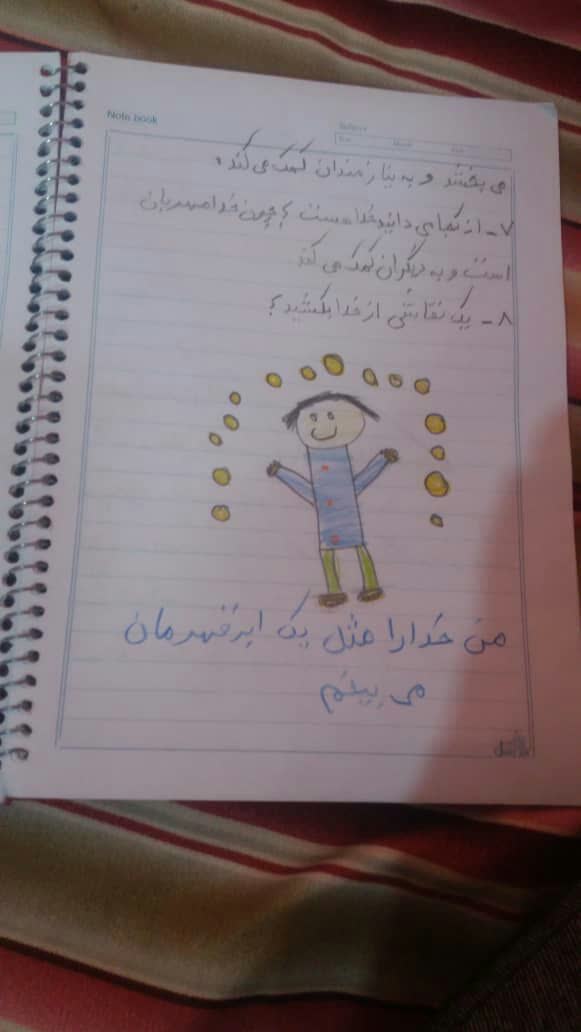 Note book
Subject
می بخشند و به نیازمندان کمک می کند.
۷- از کجا می دانید خدا هست؟ چون خدا مهربان
است و به دیگران کمک می کند
۸- یک نقاشی از خدا بکشید؟
من خدا را مثل یک ابرقهرمان
می بینم